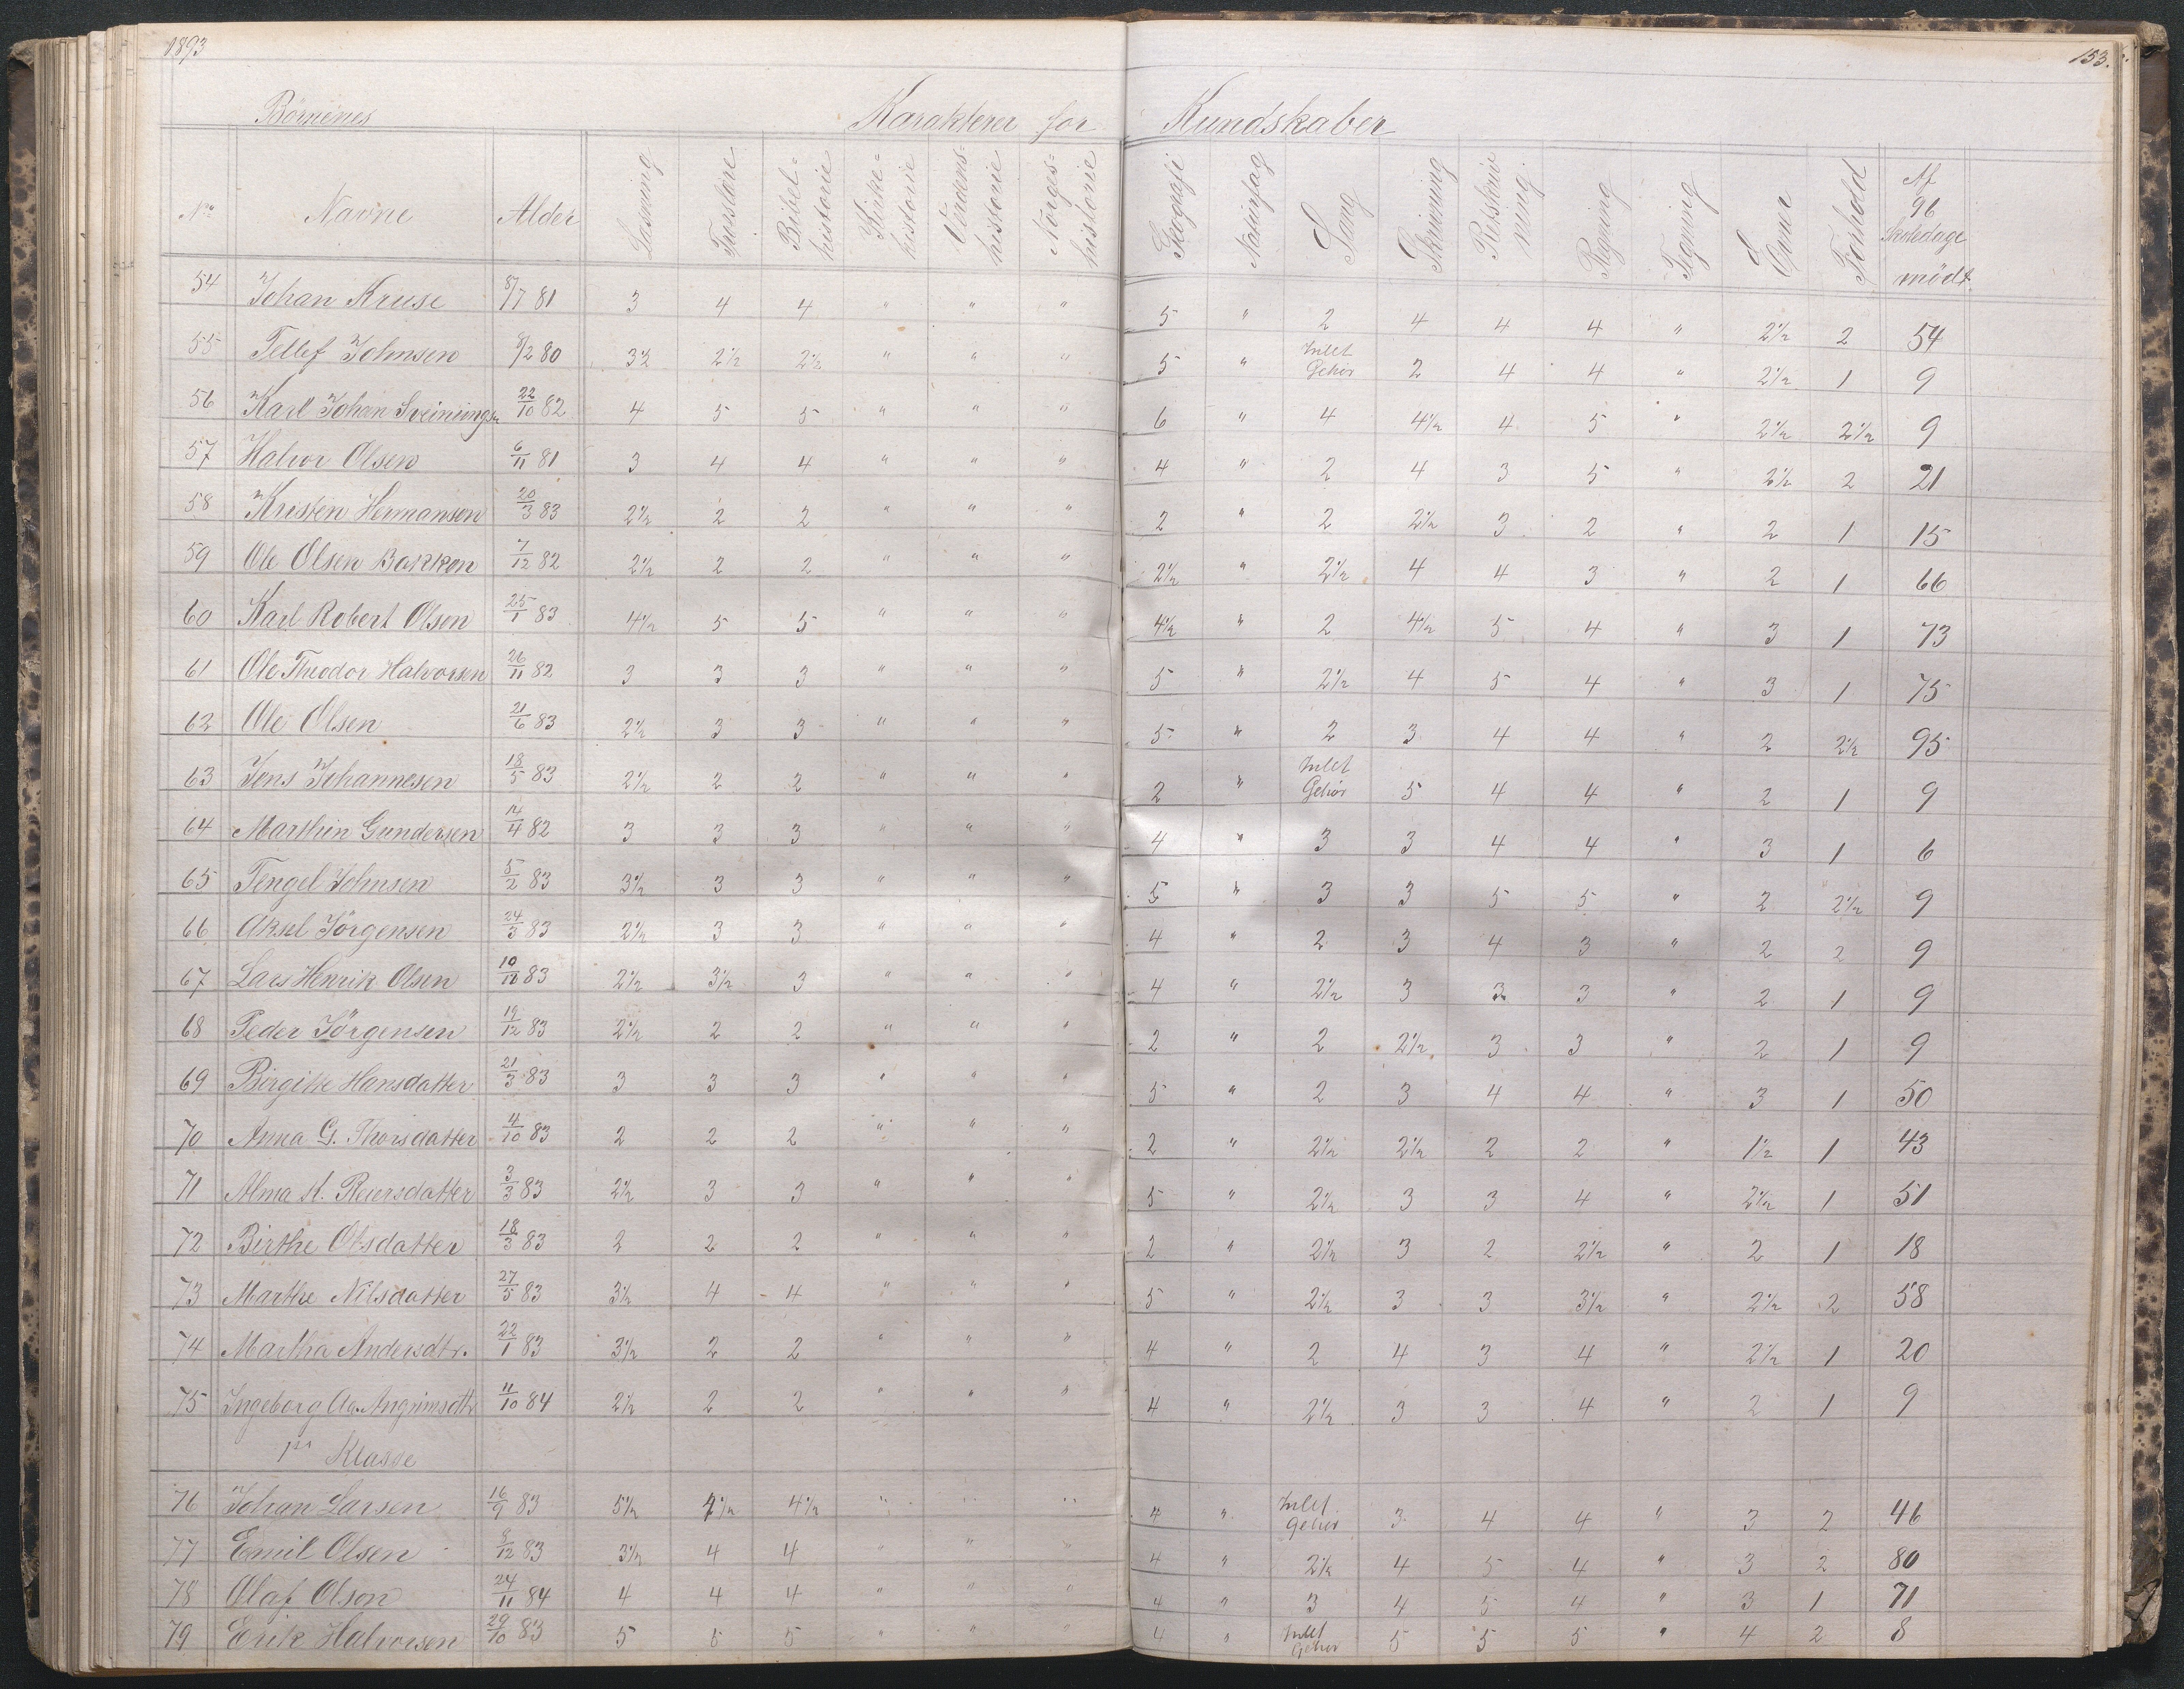 1893 153.
Børnenes Karakterer for Kundskaber
No Navne Alder Læsning Troeslære Bibel= historie Kirke= historie Verdens= historie Norges= historie Geografi Naturfag Sang Skrivning Retskriv ning Regning Tegning Evner Forhold Af 96 Skoledage mödt.
54 Johan Kruse 8/7 81 3 4 4 " " " 5 " 2 4 4 4 " 2 1/2 2 54
55 Tellef Johnsen 8/2 80 3 1/2 2 1/2 2 1/2 " " " 5 " Intet Gehör 2 4 4 " 2 1/2 1 9
56 Karl Johan Sveinungsn 22/10 82 4 5 5 " " " 6 " 4 4 1/2 4 5 " 2 1/2 2 1/2 9
57 Halvor Olsen 6/11 81 3 4 4 " " " 4 " 2 4 3 5 " 2 1/2 2 21
58 Kristen Hermansen 20/3 83 2 1/2 2 2 " " " 2 " 2 2 1/2 3 2 " 2 1 15
59 Ole Olsen Bakken 7/12 82 2 1/2 2 2 " " " 2 1/2 " 2 1/2 4 4 3 " 2 1 66
60 Karl Robert Olsen 25/1 83 4 1/2 5 5 " " " 4 1/2 " 2 4 1/2 5 4 " 3 1 73
61 Ole Theodor Halvorsen 26/11 82 3 3 3 " " " 5 " 2 1/2 4 5 4 " 3 1 75
62 Ole Olsen 21/6 83 2 1/2 3 3 " " " 5 " 2 3 4 4 " 2 2 1/2 95
63 Jens Johannesen 18/5 83 2 1/2 2 2 " " " 2 " Intet Gehör 5 4 4 " 2 1 9
64 Marthin Gundersen 14/4 82 3 3 3 " " " 4 " 3 3 4 4 " 3 1 6
65 Tengel Johnsen 5/2 83 3 1/2 3 3 " " " 5 " 3 3 5 5 " 2 2 1/2 9
66 Aksel Jörgensen 24/3 83 2 1/2 3 3 " " " 4 " 2 3 4 3 " 2 2 9
67 Lars Henrik Olsen 10/11 83 2 1/2 3 1/2 3 " " " 4 " 2 1/2 3 3 3 " 2 1 9
68 Peder Jörgensen 19/12 83 2 1/2 2 2 " " " 2 " 2 2 1/2 3 3 " 2 1 9
69 Birgitte Hansdatter 21/3 83 3 3 3 " " " 5 " 2 3 4 4 " 3 1 50
70 Anna G. Thorsdatter 4/10 83 2 2 2 " " " 2 " 2 1/2 2 1/2 2 2 " 1 1/2 1 43
71 Alma A. Reiersdatter 3/3 83 2 1/2 3 3 " " " 5 " 2 1/2 3 3 4 " 2 1/2 1 51
72 Birthe Olsdatter 18/3 83 2 2 2 " " " 2 " 2 1/2 3 2 2 1/2 " 2 1 18
73 Marthe Nilsdatter 27/5 83 3 1/2 4 4 " " " 5 " 2 1/2 3 3 3 1/2 " 2 1/2 2 58
74 Martha Andersdtr. 22/1 83 3 1/2 2 2 " " " 4 " 2 4 3 4 " 2 1/2 1 20
75 Ingeborg Aa. Angrimsdtr 11/10 84 2 1/2 2 2 " " " 4 " 2 1/2 3 3 4 " 2 1 9
1ste Klasse
76 Johan Larsen 16/9 83 5 1/2 4 1/2 4 1/2 " " " 4 " Intet Gehör 3 4 4 " 3 2 46
77 Emil Olsen 8/12 83 3 1/2 4 4 " " " 4 " 2 1/2 4 5 4 " 3 2 80
78 Olaf Olson 24/11 84 4 4 4 " " " 4 " 3 4 5 4 " 3 1 71
79 Erik Halvorsen 29/10 83 5 5 5 " " " 4 " Intet Gehör 5 5 5 " 4 2 8